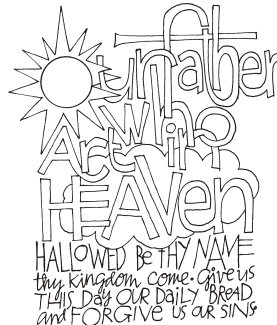 Our father
who
Art in
HEAVEN
HALLOWED Be THY NAME
thy kingdom come. Give us
THIS Day OUR DaiLY BREAD
and FORGIVE US OUR SINS